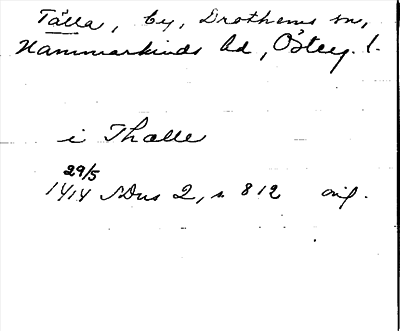 Tälla, by, Drothems sn,
Hammarkinds hd, Österg. l.
i Thalle
29/5
1414 SDns 2, s. 812 orig.